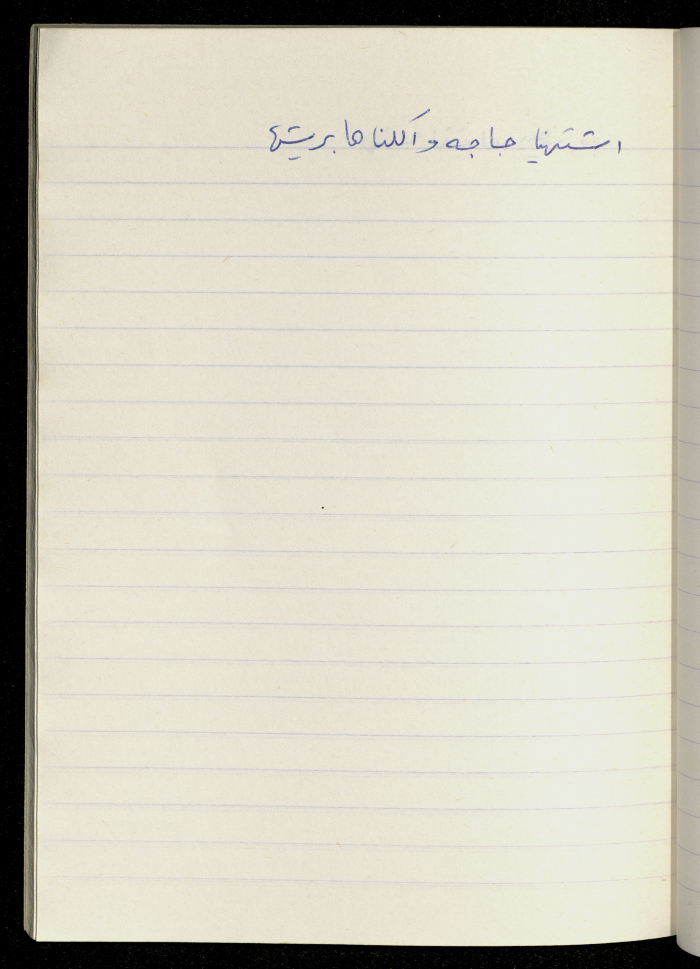 اشتهينا جاجه وأكلناها بريشها